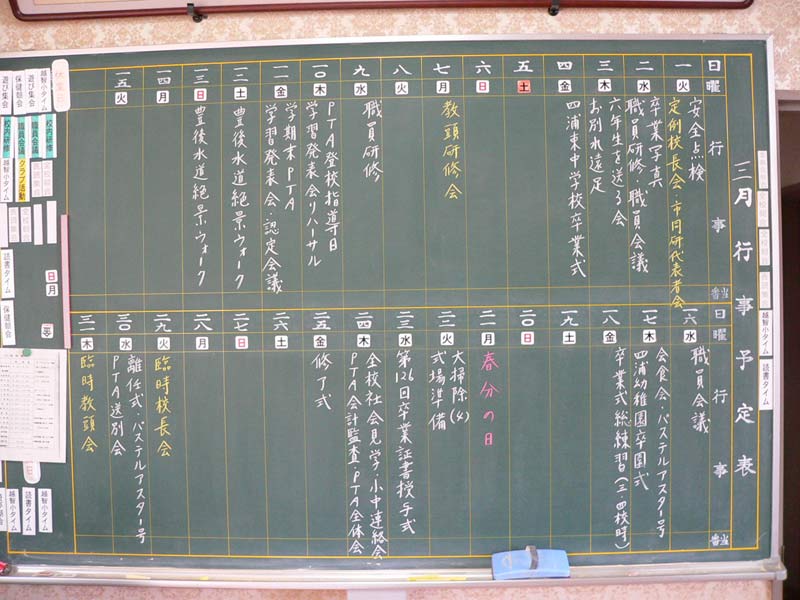 三月行事予定表
日 曜 行事 当番
一 火 安全点検
定例校長会・市同研代表者会
二 水 卒業写真
職員研修・職員会議
三 木 六年生を送る会
お別れ遠足
四 金 四浦東中学校卒業式
五 土
六 日
七 月 教頭研修会
八 火
九 水 職員研修
一〇 木 PTA登校指導日
学習発表会リハーサル
一一 金 学期末PTA
学習発表会・認定会議
一二 土 豊後水道絶景ウォーク
一三 日 豊後水道絶景ウォーク
一四 月
一五 火
日 曜 行事 当番
一六 水 職員会議
一七 木 会食会・パステルアスター号
四浦幼稚園卒園式
一八 金 卒業式総練習(三、四校時)
一九 土
二〇 日
二一 月 春分の日
二二 火 大掃除(4)
式場準備
二三 水 第126回卒業証書授与式
二四 木 全校社会見学・小中連絡会
PTA会計監査・PTA全体会
二五 金 修了式
二六 土
二七 日
二八 月
二九 火 臨時校長会
三〇 水 離任式・パステルアスター号
PTA送別会
三一 木 臨時教頭会
越智小タイム
読書タイム
休業日
越智小タイム
遊び集会
保健朝会
遊び集会
校内研修
職員会議
職員会議
校内研修
クラブ活動
越智小タイム
読書タイム
保健朝会
日
月
越智小タイム
読書タイム
越智小タイム